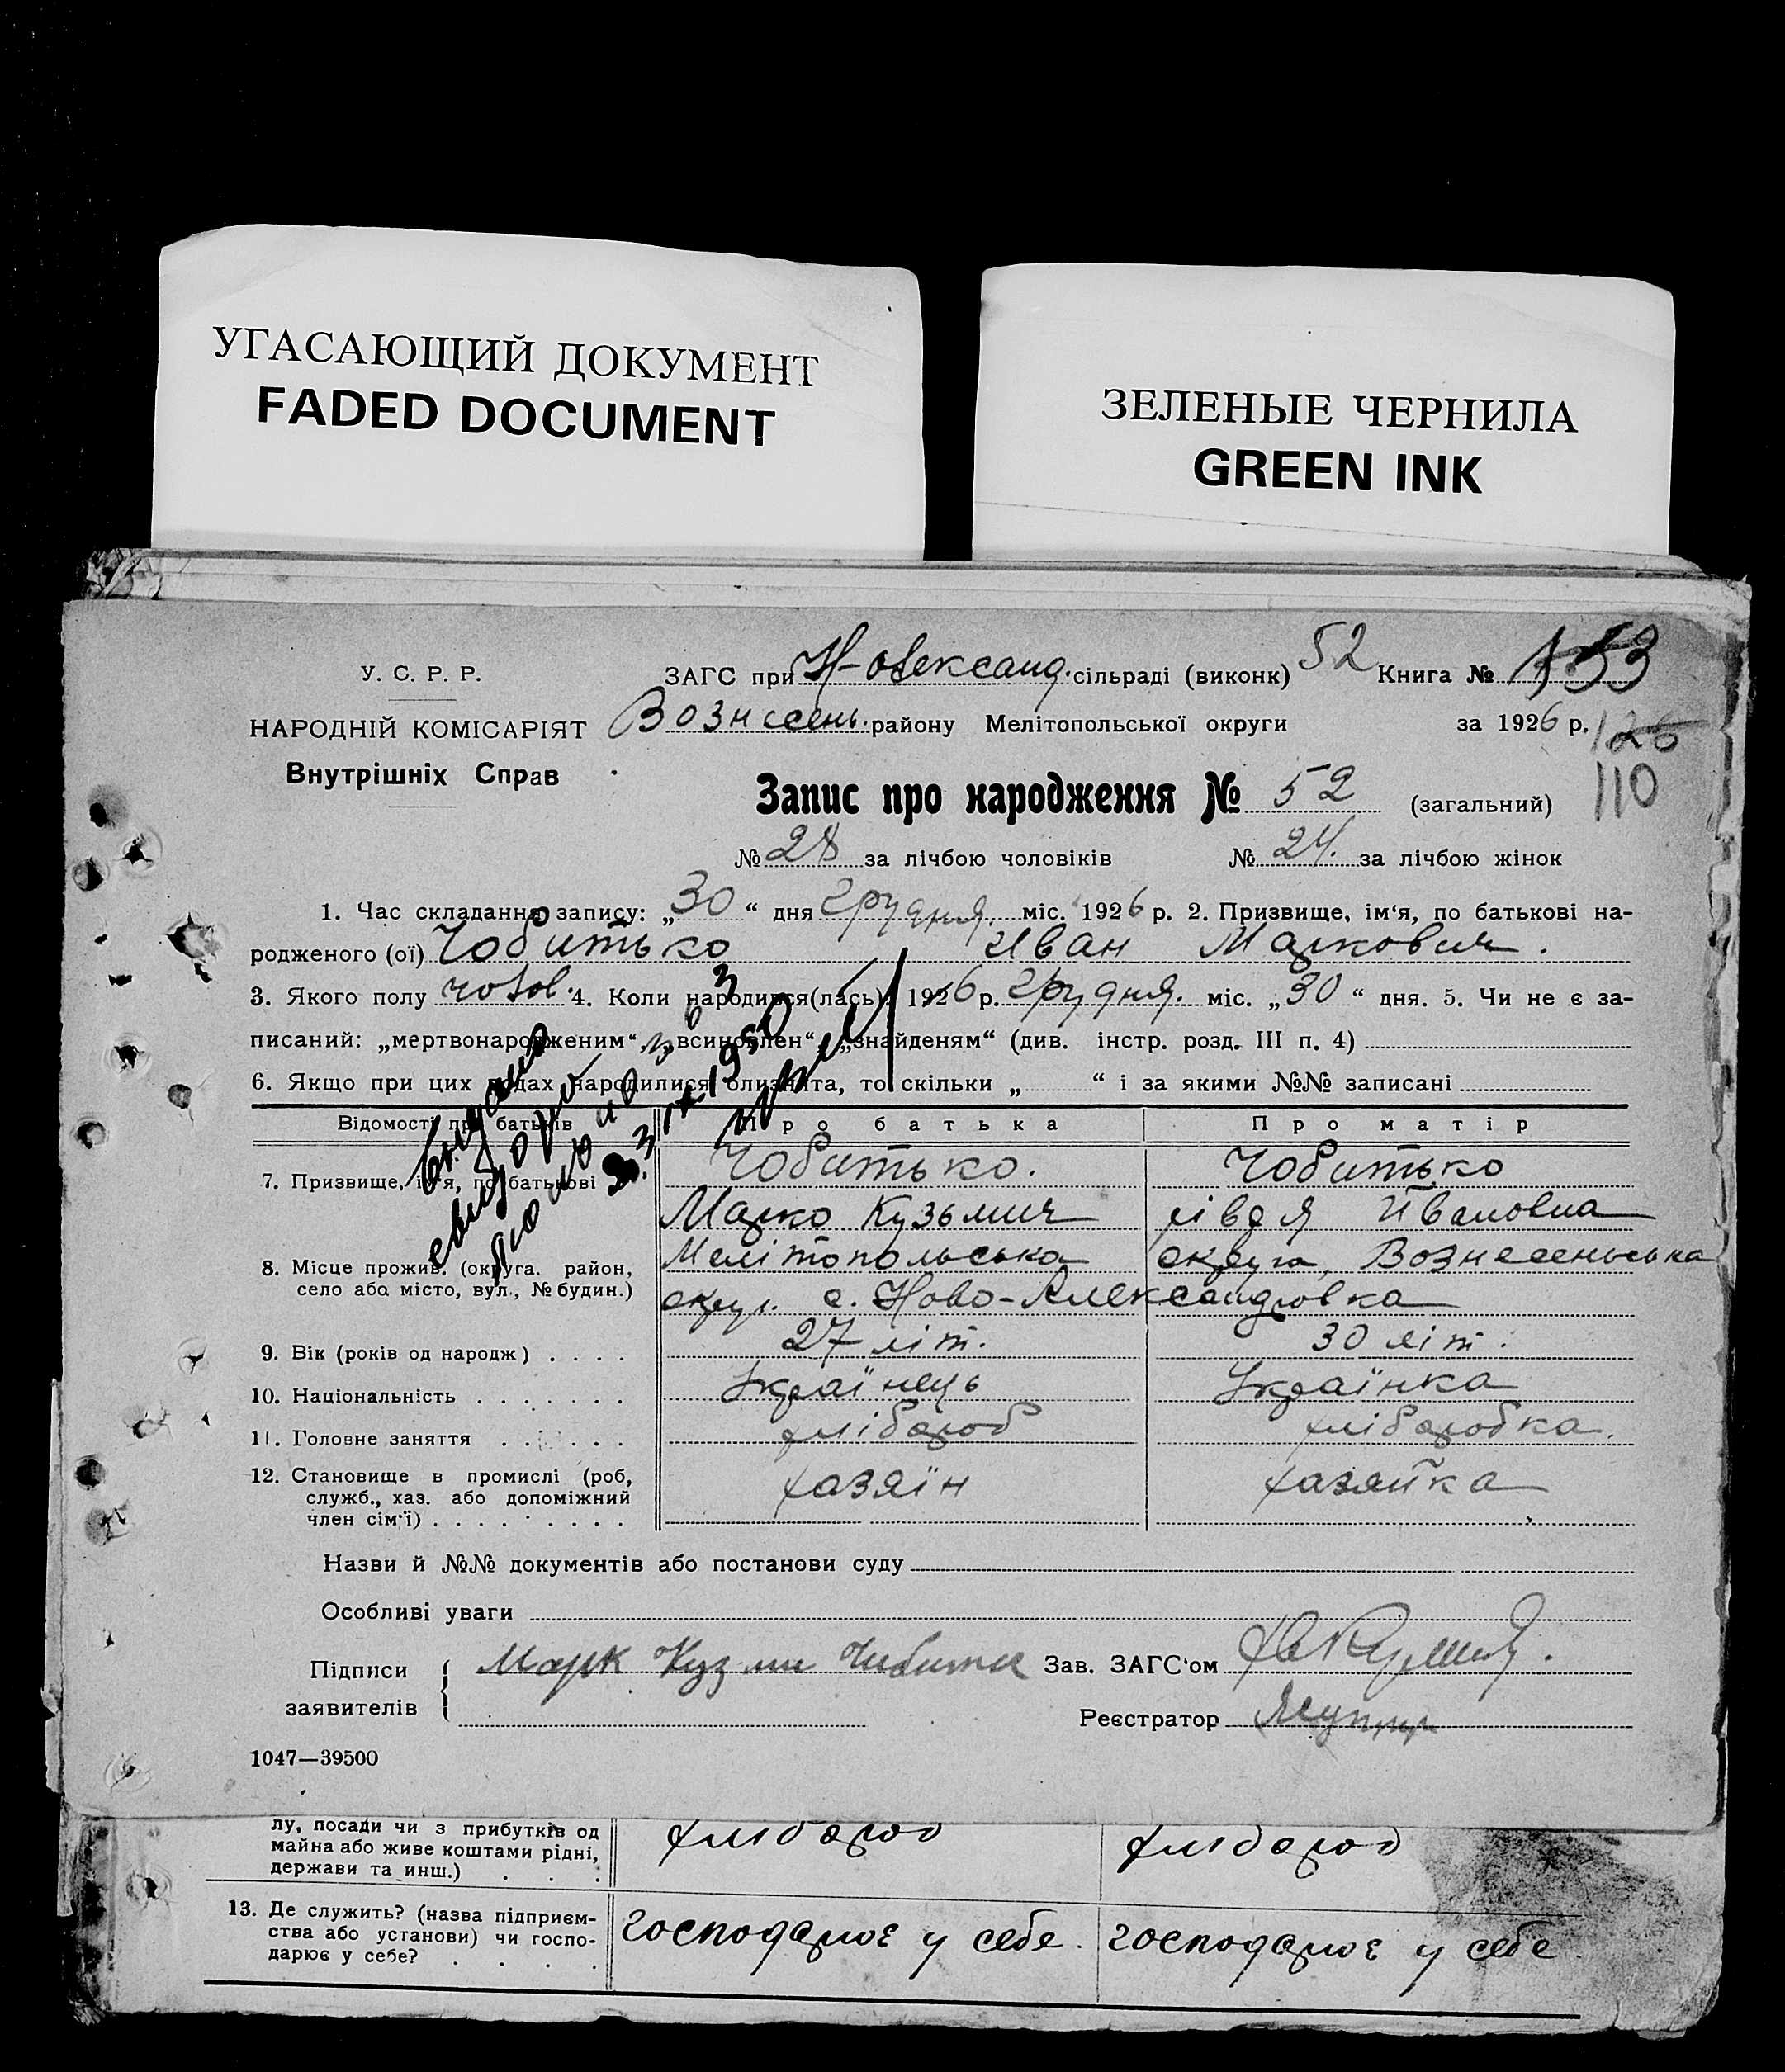 УГАСАЮЩИЙ ДОКУМЕНТ
FADED DOCUMENT
ЗЕЛЕНЫЕ ЧЕРНИЛА
GREEN INK
У. С. Р. Р.
НАРОДНІЙ КОМІСАРІЯТ
Внутрішніх Справ
ЗАГС при Н-Олександ. сільраді (виконк) 52 Книга № 153
Вознесень. району Мелітопольської округи за 1926 р. 126
110
Запис про народження № 52 (загальний)
№ 28 за лічбою чоловіків № 24. за лічбою жінок
1. Час складання запису: „30“ дня грудня міс. 1926 р. 2. Призвище, ім‘я, по батькові на-
родженого (ої) Чобитько Иван Маркович.
3. Якого полу чолов. 4. Коли народився(лась): 1926 р. грудня. міс. „30“ дня. 5. Чи не є за-
писаний: „мертвонародженим“, „всиновлен“, „знайденям“ (див. інстр. розд. III п. 4)
6. Якщо при цих родах народилися близнята, то скільки „ “ і за якими №№ записані
Відомості про батьків Про батька Про матір
7. Призвище, ім‘я, по батькові Чобитько. Чобитько
Марко Кузьмич Івановна
8. Місце прожив. (округа. район, Мелітопольська округа, Вознесенська
село або місто, вул., № будин.) с. Ново-Александровка
9. Вік (років од народж) . . . . 27 літ. 30 літ.
10. Національність . . . . . . . Українець Українка
11. Головне заняття . . . . . . хлібороб хліборобка.
12. Становище в промислі (роб, хазяїн хазяйка
служб., хаз. або допоміжний
член сім‘ї) . . . . . . . . .
3 IX 1950
Назви й №№ документів або постанови суду
Особливі уваги
Підписи Марк Кузми Зав. ЗАГС‘ом
заявителів Реєстратор
1047—39500
лу, посади чи з прибутків од хлібороб хлібороб
майна або живе коштами рідні,
держави та инш.) . . .
13. Де служить? (назва підприєм- господарює у себе. господарює у себе.
ства або установи) чи госпо-
дарює у себе? . . . .